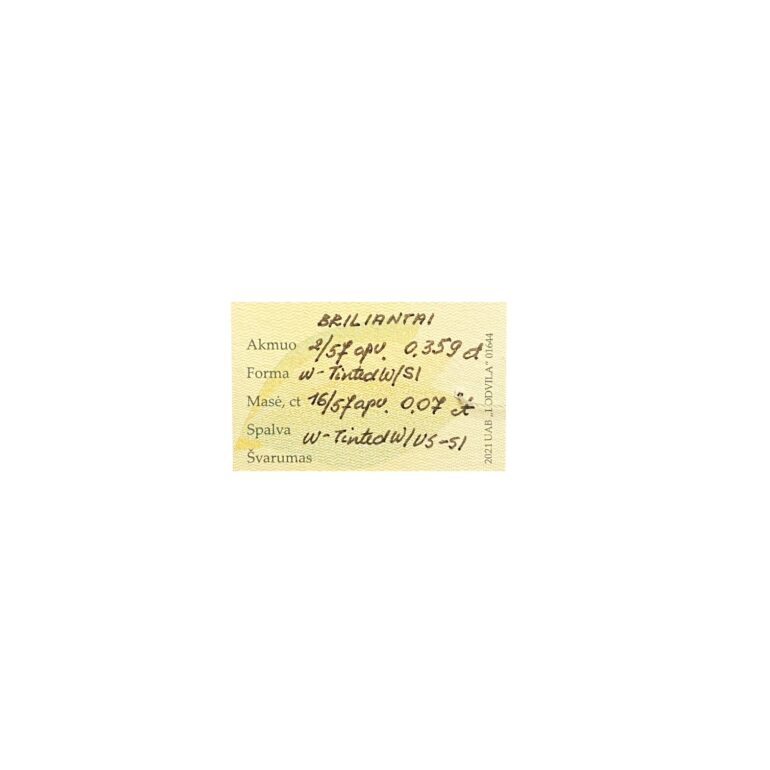 BRILIANTAI
Akmuo 2/57 apv. 0.359 ct
Forma W-Tinted W/SI
Masė, ct 16/57 apv. 0.07 ct
Spalva W-Tinted W/VS-SI
Švarumas
2021 UAB „LODVILA" 01644